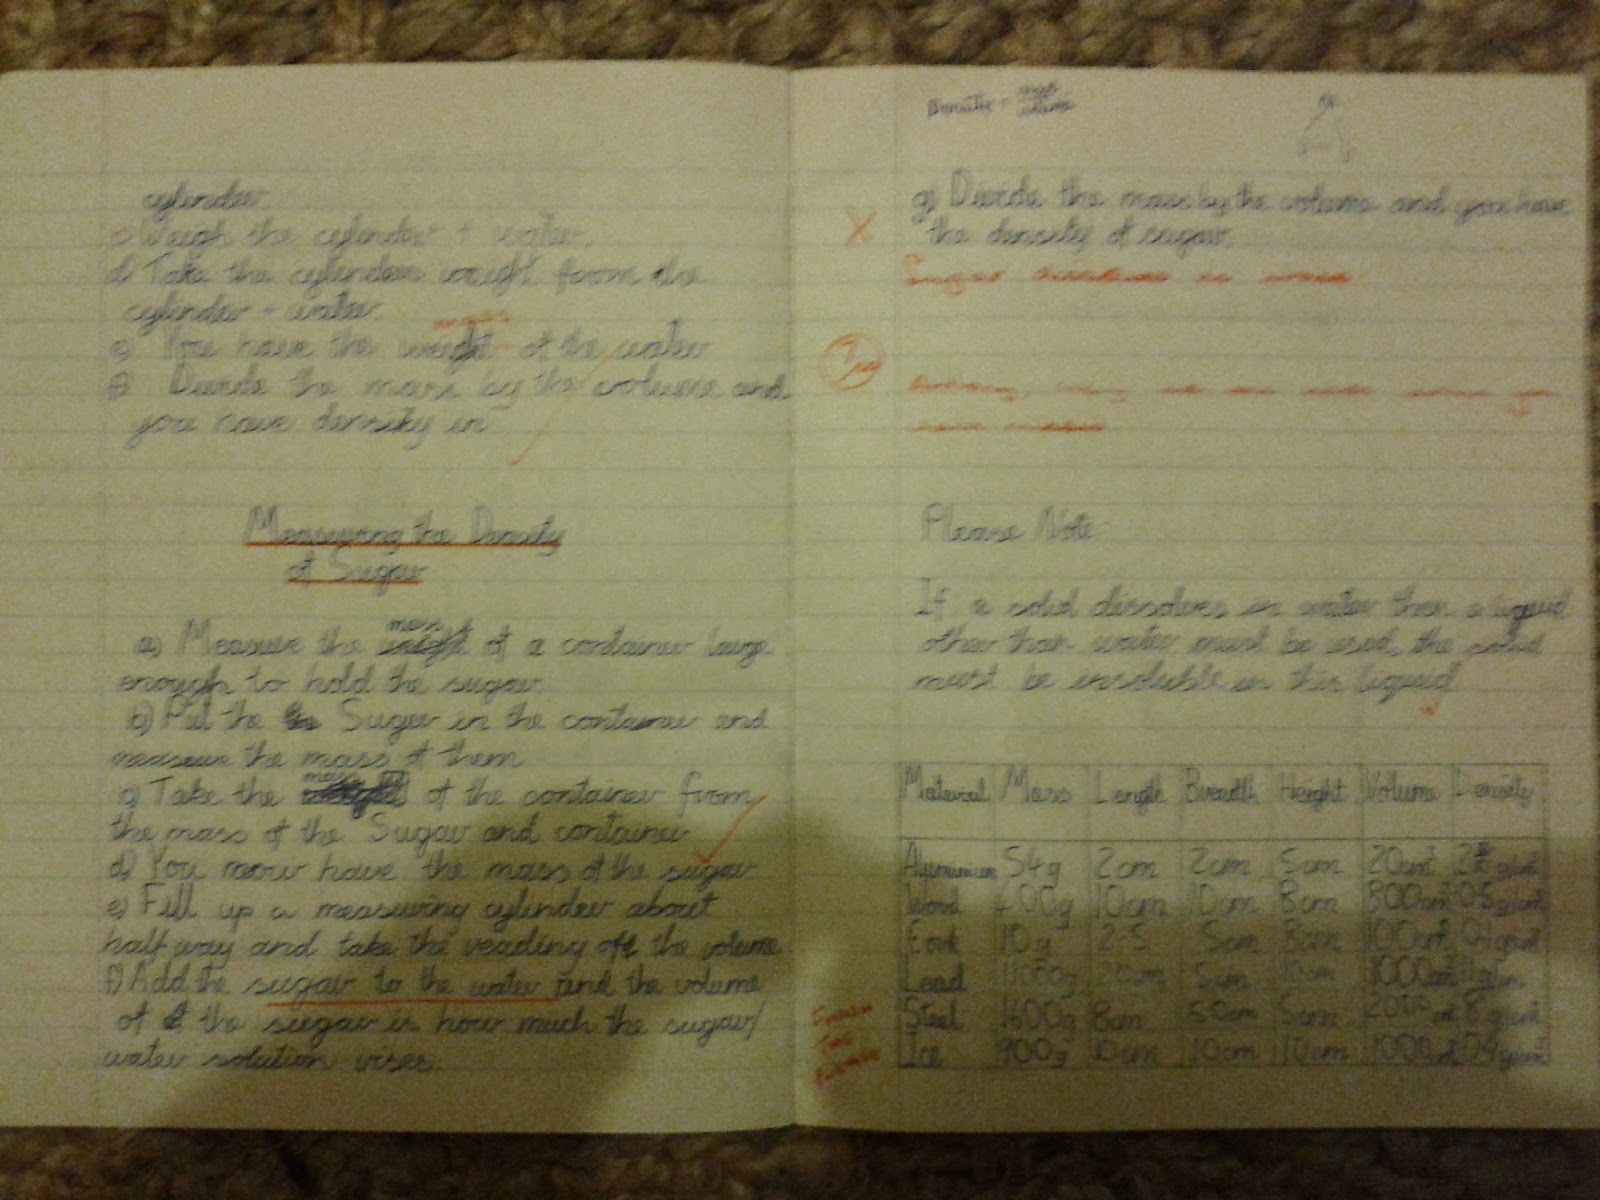 cylinder.
c) Weigh the cylinder + water.
d) Take the cylinders weight form the
cylinder + water.
mass
e) You have the weight of the water
f) Divide the mass by the volume and
you have density in
Measuring the Density
of Sugar
mass
a) Measure the weight of a container large
enough to hold the sugar.
b) Put the Sugar in the container and
measure the mass of them
mass
c) Take the of the container from
the mass of the Sugar and container
d) You now have the mass of the sugar.
e) Fill up a measuring cylinder about
half way and take the reading of the volume
f) Add the sugar to the water and the volume
of the sugar is how much the sugar/
water solution rises.
Density = mass
volume
g) Divide the mass by the volume and you have
the density of sugar.
X
Sugar dissolves in water
7/10
Please Note
If a solid dissolves in water then a liquid
other than water must be used, the solid
must be insoluble in this liquid
Material Mass Length Breadth Height Volume Density
Aluminium 54g 2cm 2cm 5cm 20cm³
Wood 400g 10cm 10cm 8cm 800cm³ 0.5 g/cm³
10g 5cm 100cm³
Lead 11000g 5cm 10cm 1000cm³ 11 g/cm³
Steel 1600g 8cm 5cm 8 g/cm³
Ice 900g 10cm 10cm 10cm 1000cm³ 0.9 g/cm³